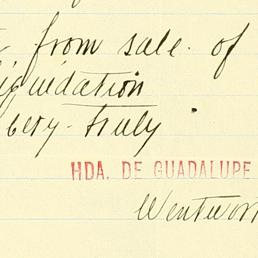 from sale. of
liquidation
very truly
HDA. DE GUADALUPE
Wentwor